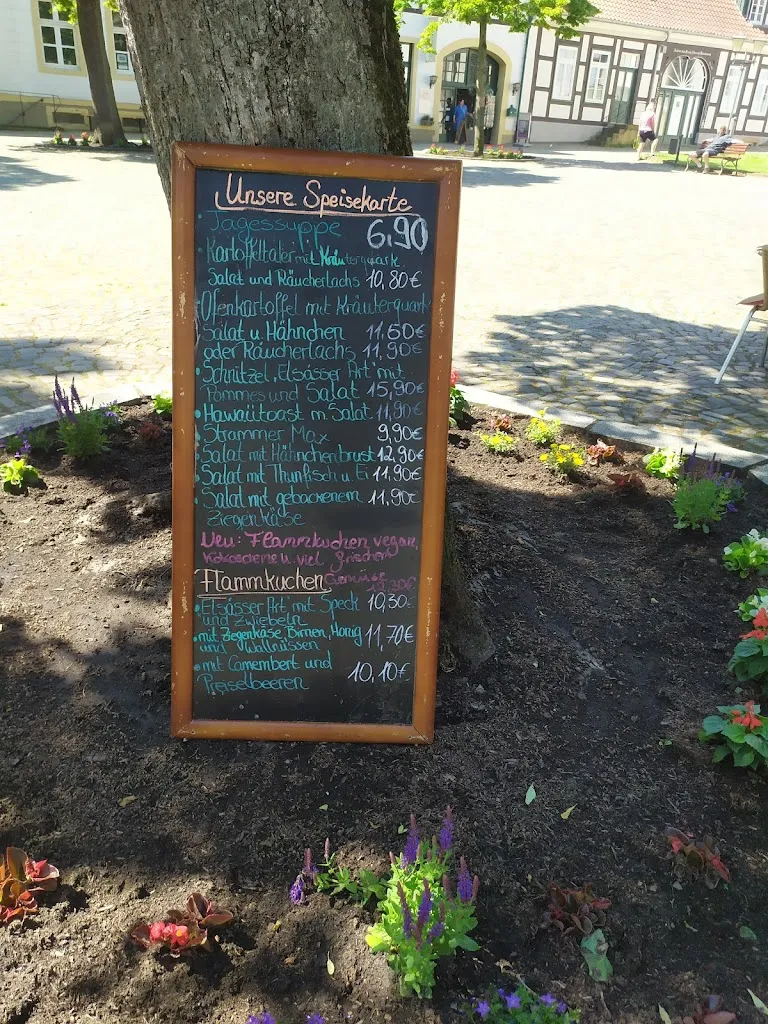 Unsere Speisekarte
Tagessuppe 6,90
Kartoffeltaler mit Kräuterquark
Salat und Räucherlachs 10,80€
Ofenkartoffel mit Kräuterquark
Salat u Hähnchen 11.50€
oder Räucherlachs 11,90€
Schnitzel „Elsässer Art“ mit
Pommes und Salat 15,90€
Hawaiitoast m. Salat 11,90€
Strammer Max 9,90€
Salat mit Hähnchenbrust 12,90€
Salat mit Thunfisch u. Ei 11,90€
Salat mit gebackenem 11,90€
Ziegenkäse
Neu: Flammkuchen vegan,
u. viel frischem
Gemüse
Flammkuchen
Elsässer Art mit Speck 10,30€
und Zwiebeln
mit Ziegenkäse, Birnen, Honig 11,70€
und Wallnüssen
mit Camembert und
Preiselbeeren 10,10€